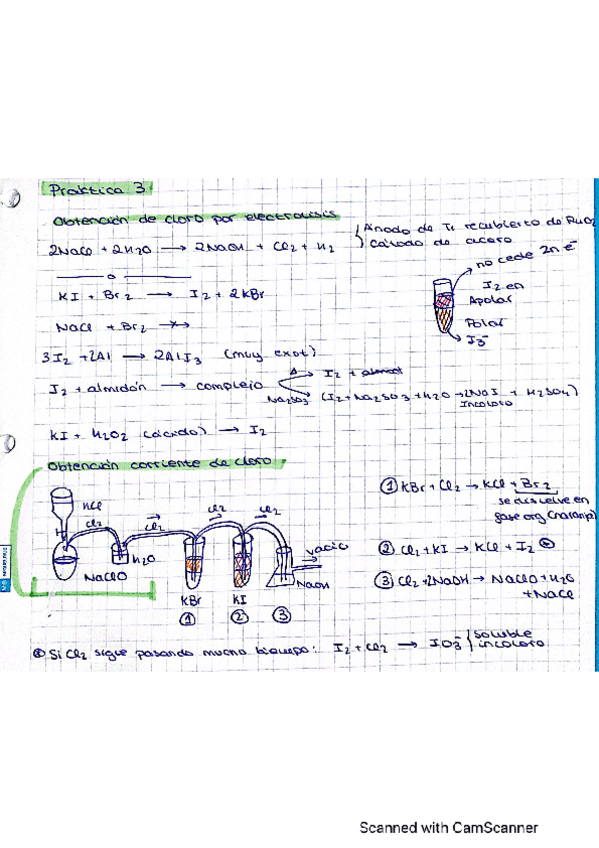 Práktica 3
Obtención de cloro por electrólisis
2NaCl + 2H2O → 2NaOH + Cl2 + H2 { Anodo de Ti recubierto de RuO2
Cátodo de acero
KI + Br2 → I2 + 2KBr
no cede 2n e-
I2 en
Apolar
NaCl + Br2 -x→
Polar
I3-
3I2 + 2Al → 2AlI3 (muy exot)
I2 + almidón → complejo
Δ → I2 + almid
Na2SO3 (I2 + Na2SO3 + H2O → 2NaI + H2SO4)
Incoloro
KI + H2O2 (ácido) → I2
Obtención corriente de cloro
HCl
Cl2
Cl2
Cl2
Cl2
vacio
H2O
NaClO
NaOH
KBr
KI
① ② ③
① KBr + Cl2 → KCl + Br2
se disuelve en
fase org (naranja)
② Cl2 + KI → KCl + I2 ⊛
③ Cl2 + 2NaOH → NaClO + H2O
+ NaCl
⊛ Si Cl2 sigue pasando mucho tiempo: I2 + Cl2 → IO3- { soluble
incoloro
Scanned with CamScanner